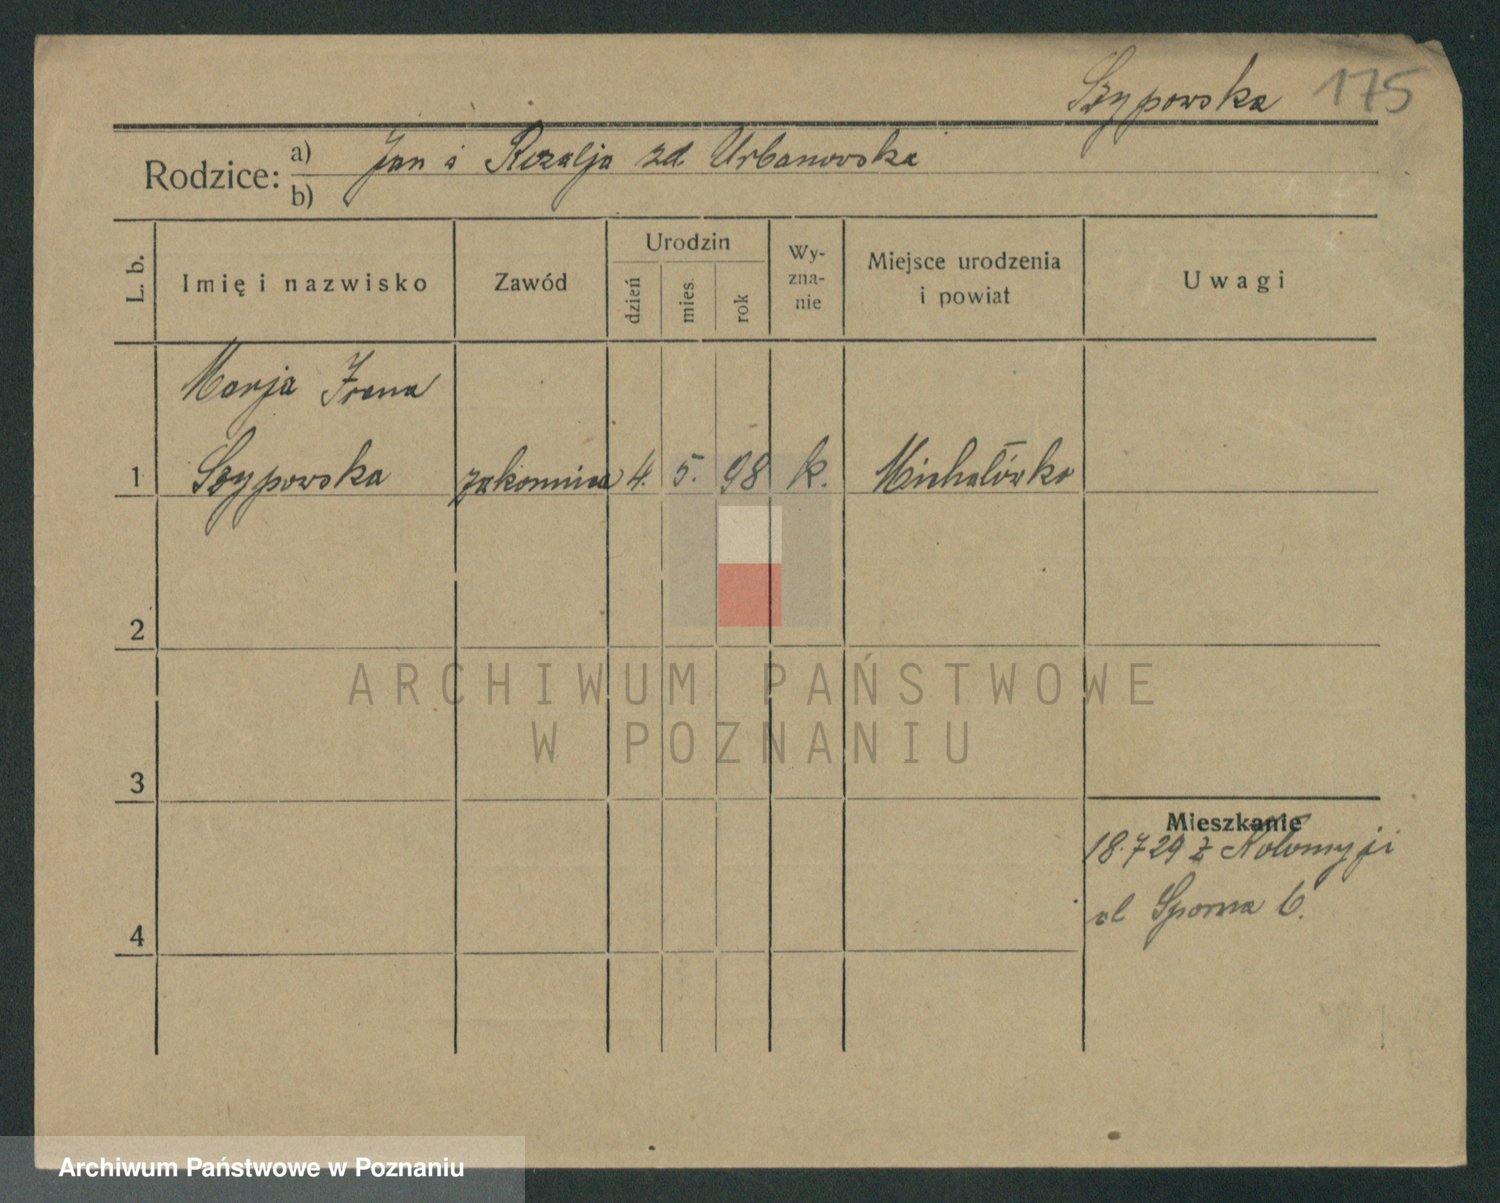 Szypowska 175
Rodzice: a) Jan i Rozalja zd Urbanowska
b)
L. b. Imię i nazwisko Zawód Urodzin dzień mies. rok Wy-zna-nie Miejsce urodzenia i powiat Uwagi
Marja Irena
1 Szypowska zakonnica 4. 5. 98 k. Michałówko
2
ARCHIWUM PAŃSTWOWE
W POZNANIU
3
Mieszkanie
18.7 29 z Kołomyji
ul Sporna 6.
4
Archiwum Państwowe w Poznaniu